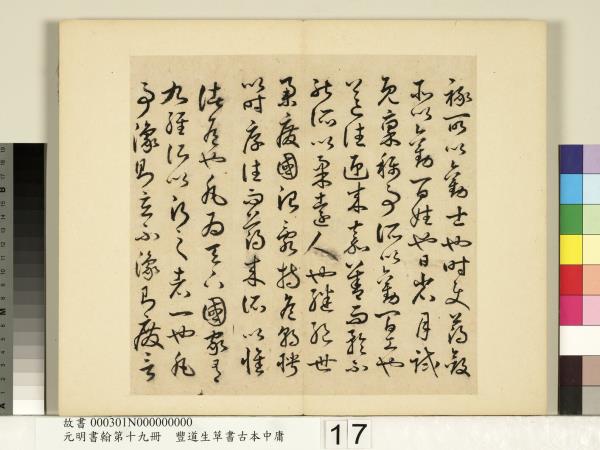 祿所以勸士也時使薄斂
所以勸百姓也日省月試
既稟稱事所以勸百工也
送往迎來嘉善而矜不
能所以柔遠人也繼絕世
舉廢國治亂持危朝聘
以時厚往而薄來所以懷
諸侯也凡為天下國家有
九經所以行之者一也凡
事豫則立不豫則廢言
故書 000301N000000000
元明書翰第十九冊 豐道生草書古本中庸
17